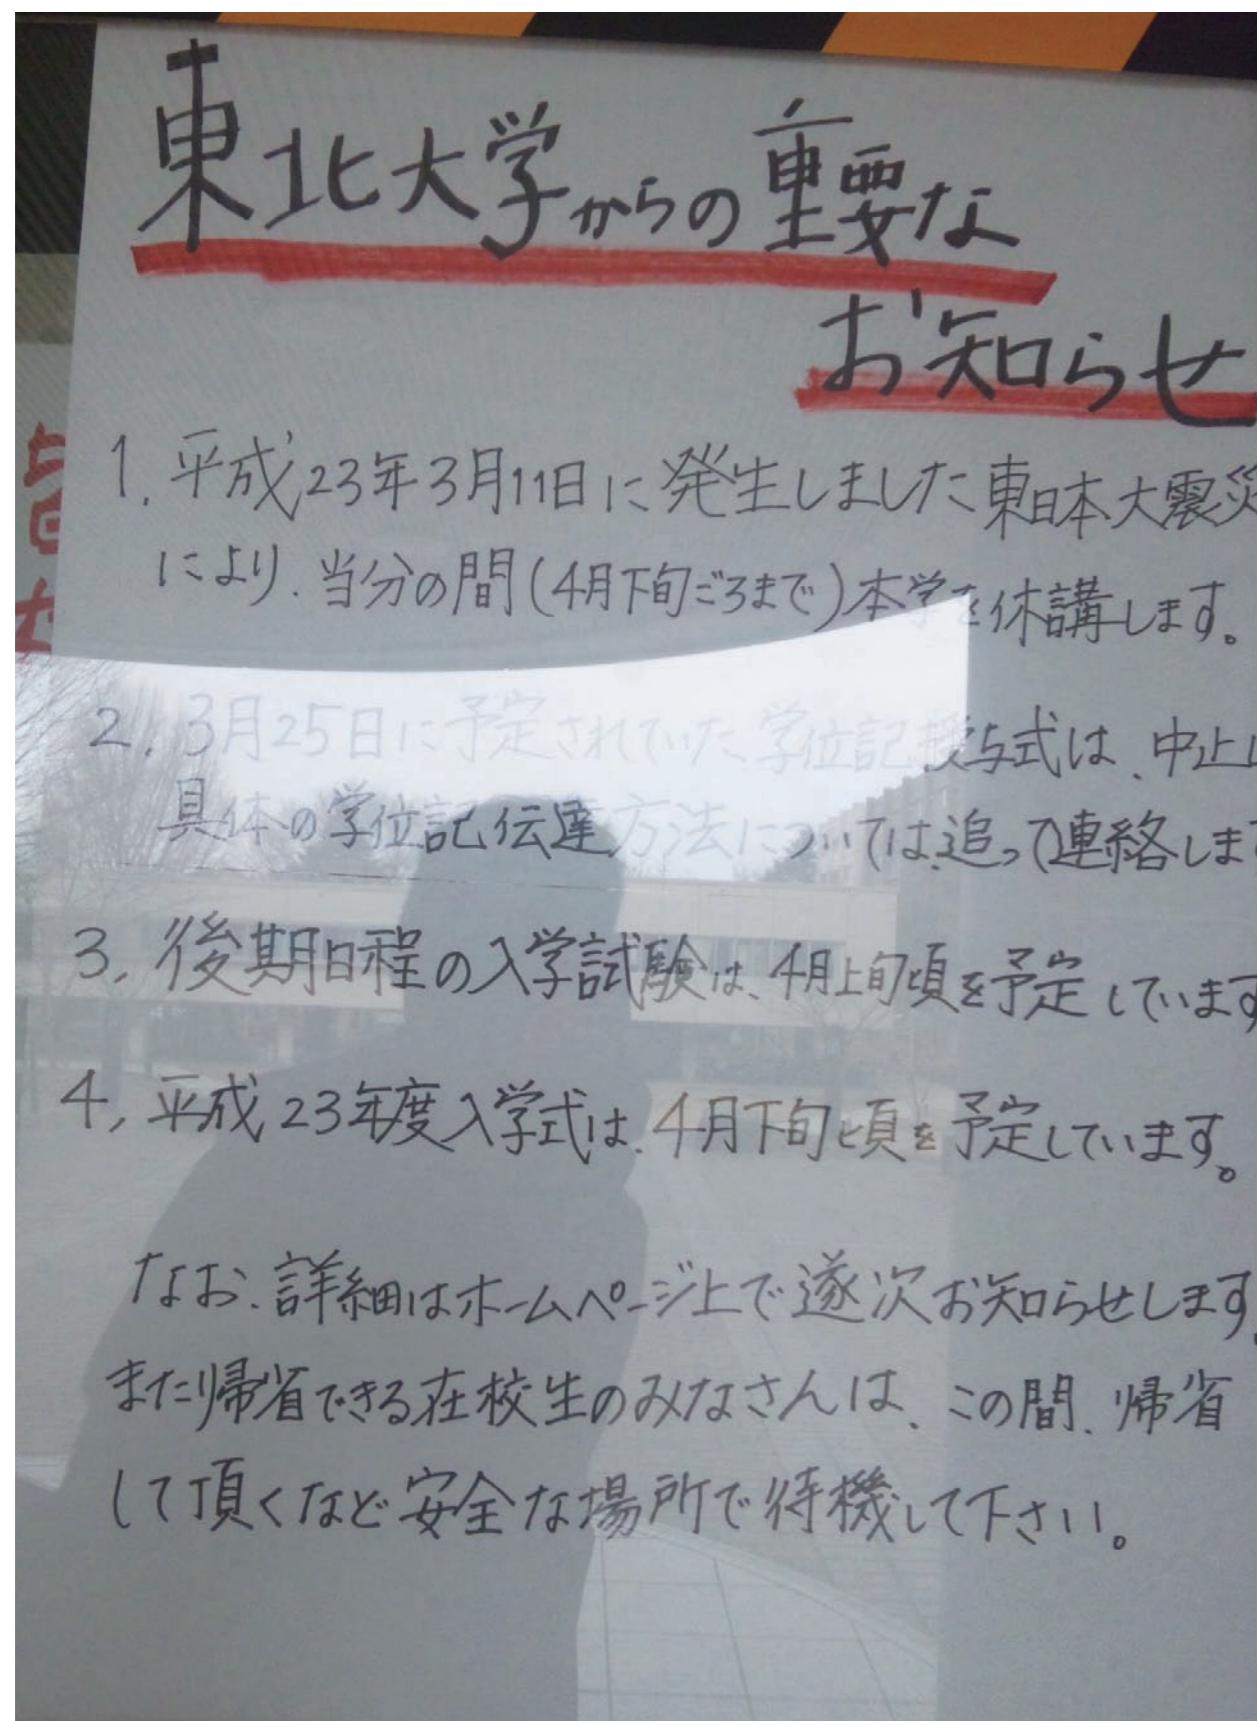 東北大学からの重要な
お知らせ
1. 平成23年3月11日に発生しました東日本大震災
により、当分の間(4月下旬ごろまで)本学を休講します。
2. 3月25日に予定されていた学位記授与式は、中止し
具体の学位記伝達方法については、追って連絡しま
3. 後期日程の入学試験は、4月上旬頃を予定しています
4. 平成23年度入学式は、4月下旬頃を予定しています。
なお、詳細はホームページ上で逐次お知らせします。
また帰省できる在校生のみなさんは、この間、帰省
して頂くなど安全な場所で待機して下さい。